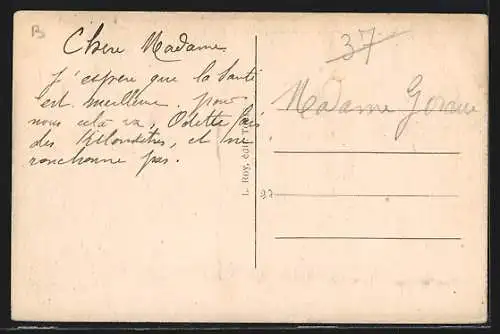 B
Chère Madame
J'espère que la santé
est meilleure. pour
nous cela va, Odette fais
des Kilomètres, et ne
ronchonne pas.
37
Madame
L. Roy, édit.
37